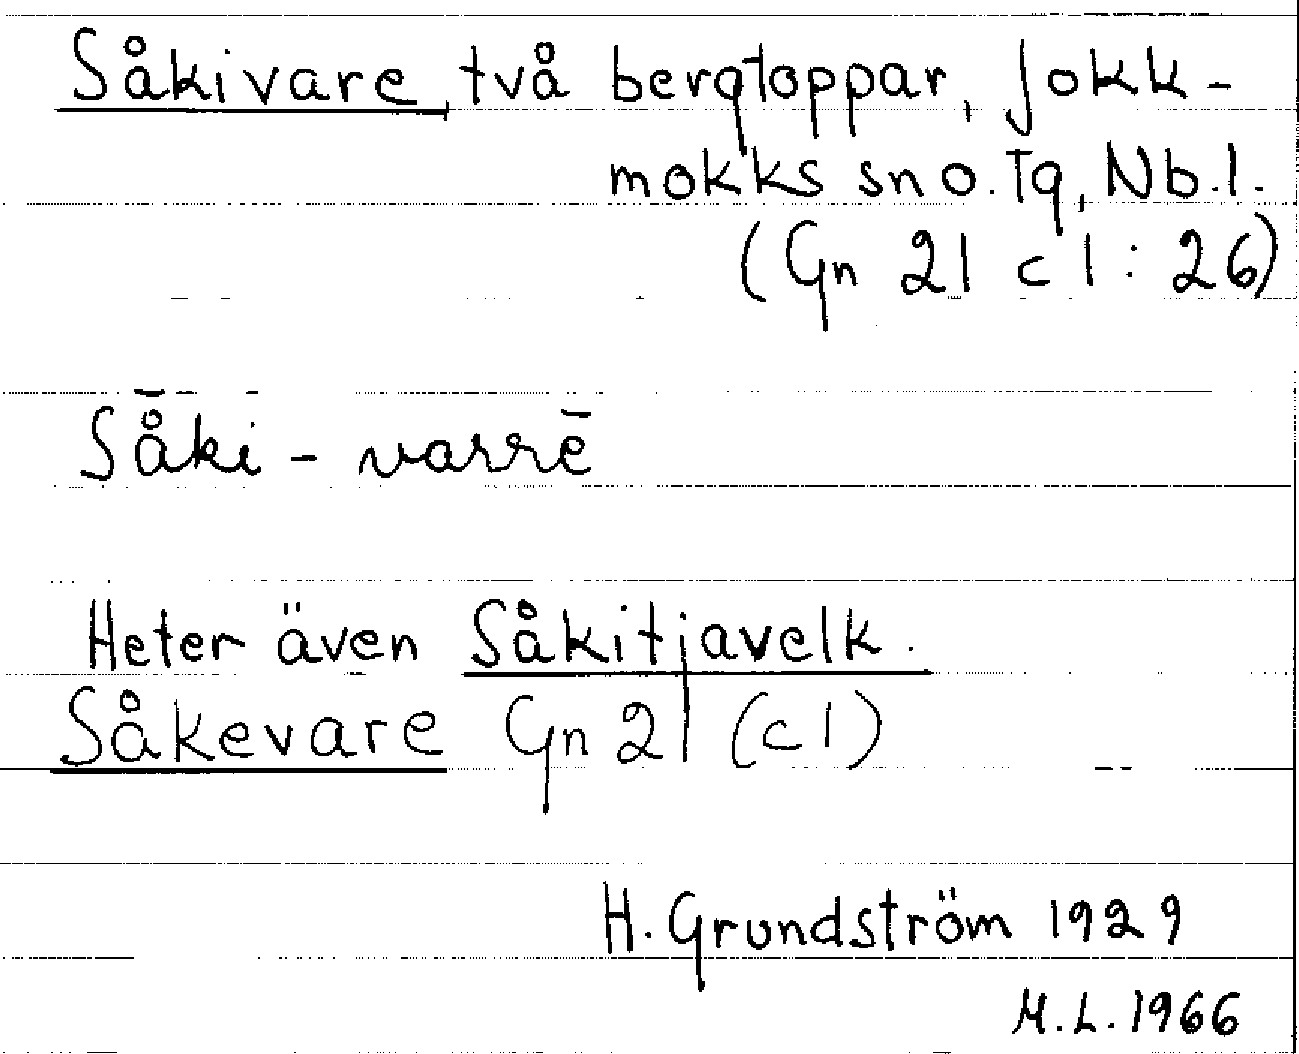 Såkivare, två bergtoppar, Jokk-
mokks sn o. Tg, Nb. l.
(Gn 21 c 1 : 26)
Så̄ki - varrē
Heter även Såkitjavelk.
Såkevare Gn 21 (c1)
H. Grundström 1929
M.L. 1966